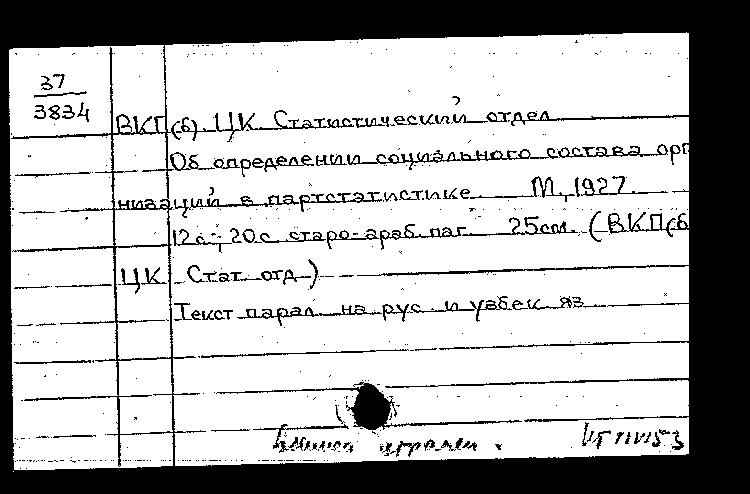 37
3834
ВКП(б). ЦК. Статистический отдел
Об определении социального состава орг
низаций в партстатистике. М., 1927.
12 с.; 20 с. старо-араб. паг. 25 см. (ВКП(б
ЦК. Стат. отд.)
Текст парал. на рус. и узбек. яз.